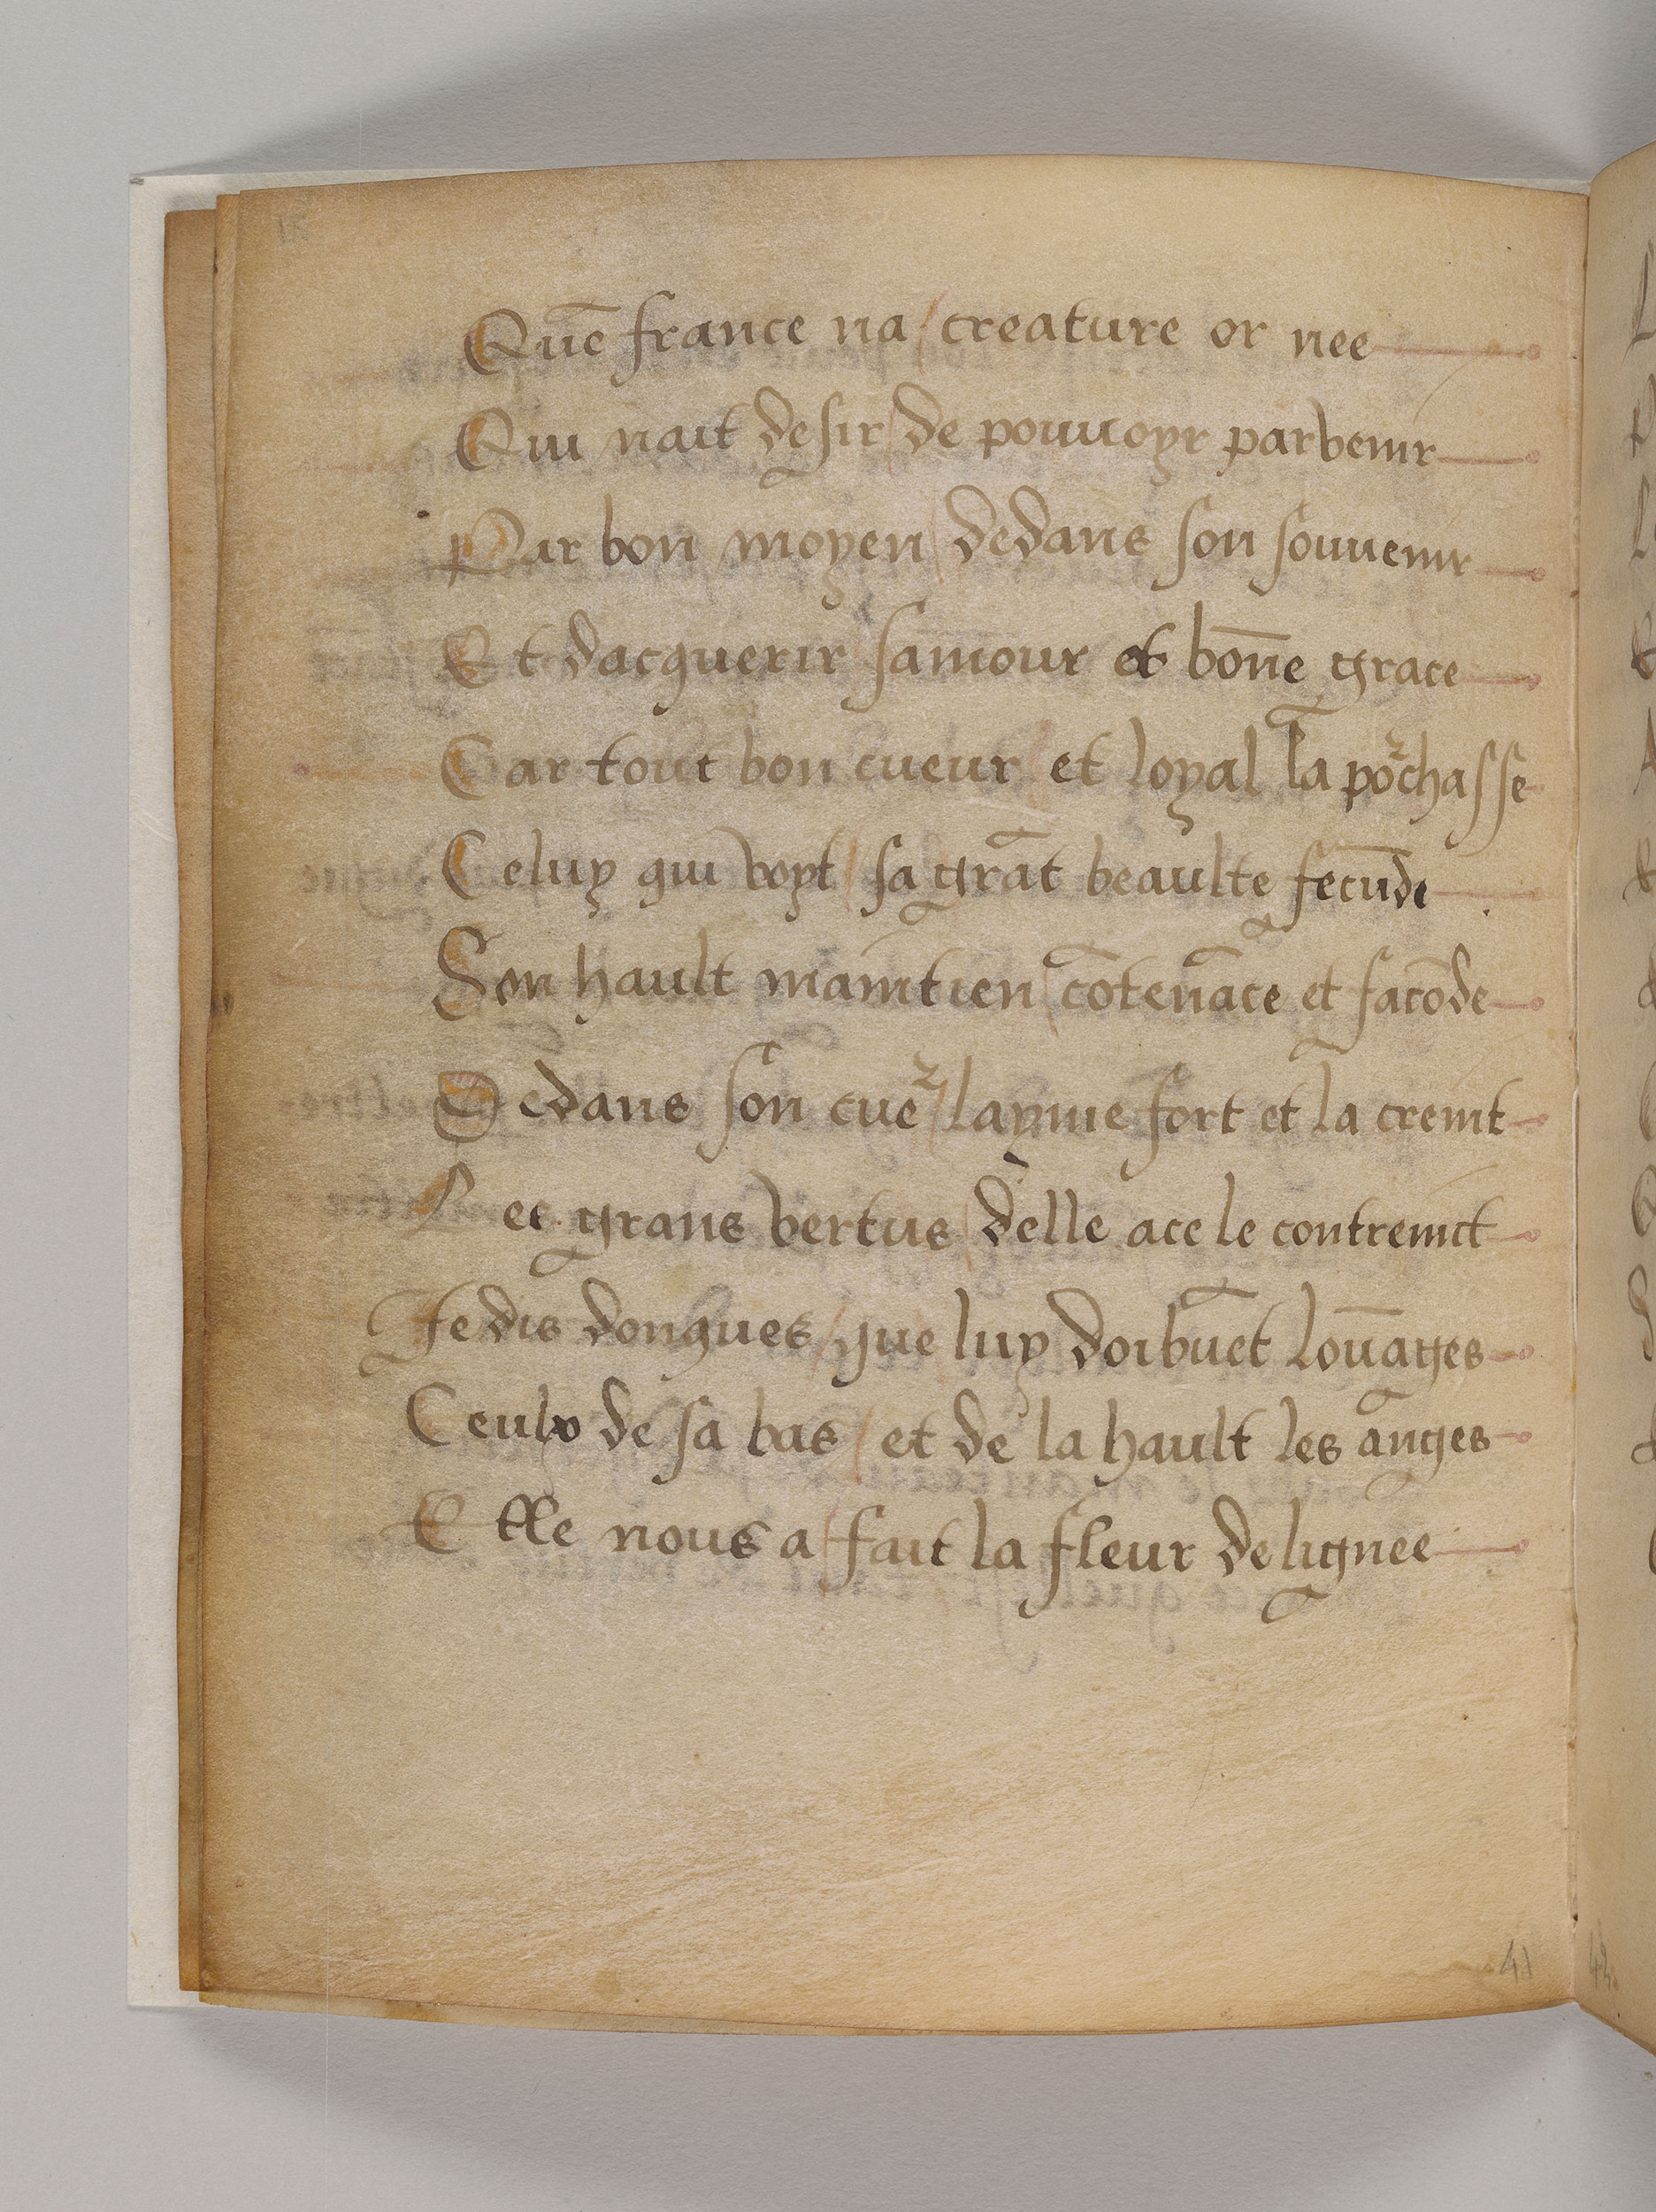 Quē france na / creature or nee
Qui nait desir / de pouuoyr parvenir
Par bon moyen / dedans son souuenir
Et dacquerir samour et bōne grace
Car tout bon cueur / et loyal la po²chasse
Celuy qui voyt / sa grāt beaulte fecūde
Son hault maintien / cōtenāce et facōde
Dedans son cue² / layme fort et la creint
Les grans vertus / delle ace le contreinct
Je dis donques / que luy doibuēt louāges
Ceulx de sa bas / et de la hault les anges
Elle nous a / fait la fleur de lignee
41
42